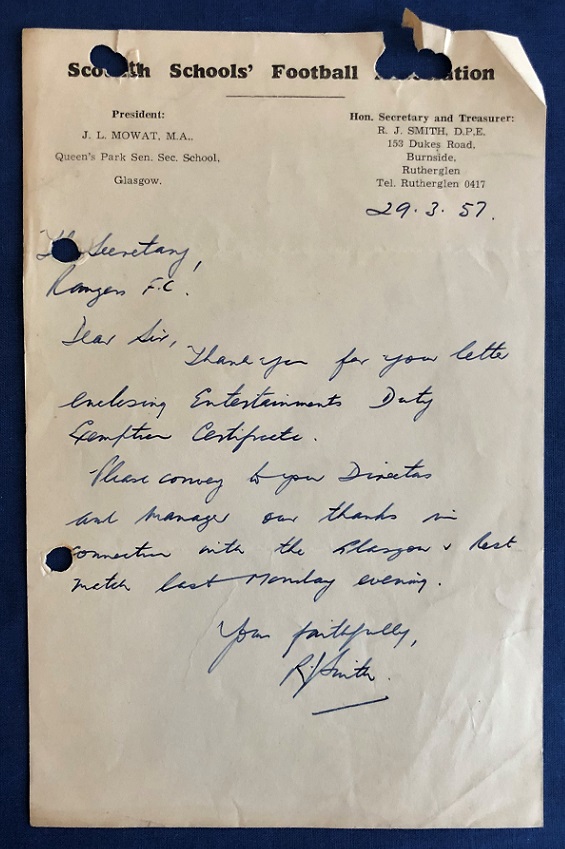 Scottish Schools' Football Association
President:
J. L. MOWAT, M.A.,
Queen's Park Sen. Sec. School,
Glasgow.
Hon. Secretary and Treasurer:
R. J. SMITH, D.P.E.
153 Dukes Road,
Burnside,
Rutherglen
Tel. Rutherglen 0417
29.3.57.
The Secretary,
Rangers F.C.
Dear Sir,
Thank you for your letter
enclosing Entertainments Duty
Exemption Certificate.
Please convey to your Directors
and Manager our thanks in
connection with the Glasgow v Rest
match last Monday evening.
Yours faithfully,
R J Smith.